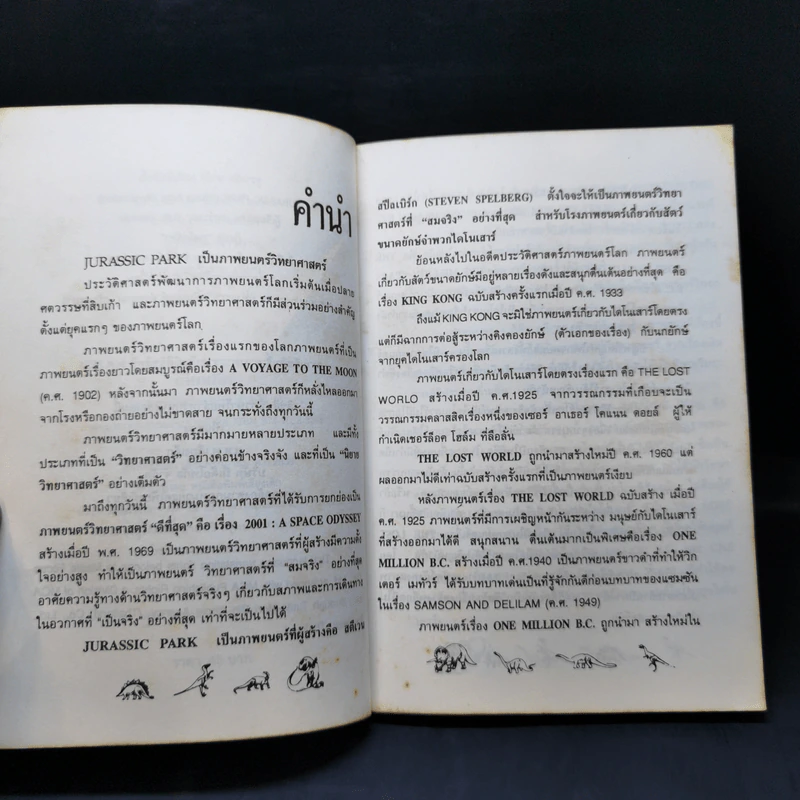 คำนำ
JURASSIC PARK เป็นภาพยนตร์วิทยาศาสตร์
ประวัติศาสตร์พัฒนาการภาพยนตร์โลกเริ่มต้นเมื่อปลาย
ศตวรรษที่สิบเก้า และภาพยนตร์วิทยาศาสตร์ก็มีส่วนร่วมอย่างสำคัญ
ตั้งแต่ยุคแรกๆ ของภาพยนตร์โลก
ภาพยนตร์วิทยาศาสตร์เรื่องแรกของโลกภาพยนตร์ที่เป็น
ภาพยนตร์เรื่องยาวโดยสมบูรณ์คือเรื่อง A VOYAGE TO THE MOON
(ค.ศ. 1902) หลังจากนั้นมา ภาพยนตร์วิทยาศาสตร์ก็หลั่งไหลออกมา
จากโรงหรือกองถ่ายอย่างไม่ขาดสาย จนกระทั่งถึงทุกวันนี้
ภาพยนตร์วิทยาศาสตร์มีมากมายหลายประเภท และมีทั้ง
ประเภทที่เป็น "วิทยาศาสตร์" อย่างค่อนข้างจริงจัง และที่เป็น "นิยาย
วิทยาศาสตร์" อย่างเต็มตัว
มาถึงทุกวันนี้ ภาพยนตร์วิทยาศาสตร์ที่ได้รับการยกย่องเป็น
ภาพยนตร์วิทยาศาสตร์ "ดีที่สุด" คือ เรื่อง 2001 : A SPACE ODYSSEY
สร้างเมื่อปี พ.ศ. 1969 เป็นภาพยนตร์วิทยาศาสตร์ที่ผู้สร้างมีความตั้ง
ใจอย่างสูง ทำให้เป็นภาพยนตร์ วิทยาศาสตร์ที่ "สมจริง" อย่างที่สุด
อาศัยความรู้ทางด้านวิทยาศาสตร์จริงๆ เกี่ยวกับสภาพและการเดินทาง
ในอวกาศที่ "เป็นจริง" อย่างที่สุด เท่าที่จะเป็นไปได้
JURASSIC PARK เป็นภาพยนตร์ที่ผู้สร้างคือ สตีเวน
สปีลเบิร์ก (STEVEN SPELBERG) ตั้งใจจะให้เป็นภาพยนตร์วิทยา
ศาสตร์ที่ "สมจริง" อย่างที่สุด สำหรับโรงภาพยนตร์เกี่ยวกับสัตว์
ขนาดยักษ์จำพวกไดโนเสาร์
ย้อนหลังไปในอดีตประวัติศาสตร์ภาพยนตร์โลก ภาพยนตร์
เกี่ยวกับสัตว์ขนาดยักษ์มีอยู่หลายเรื่องดังและสนุกตื่นเต้นอย่างที่สุด คือ
เรื่อง KING KONG ฉบับสร้างครั้งแรกเมื่อปี ค.ศ. 1933
ถึงแม้ KING KONG จะมิใช่ภาพยนตร์เกี่ยวกับไดโนเสาร์โดยตรง
แต่ก็มีฉากการต่อสู้ระหว่างคิงคองยักษ์ (ตัวเอกของเรื่อง) กับนกยักษ์
จากยุคไดโนเสาร์ครองโลก
ภาพยนตร์เกี่ยวกับไดโนเสาร์โดยตรงเรื่องแรก คือ THE LOST
WORLO สร้างเมื่อปี ค.ศ.1925 จากวรรณกรรมที่เกือบจะเป็น
วรรณกรรมคลาสสิคเรื่องหนึ่งของเซอร์ อาเธอร์ โคแนน ดอยล์ ผู้ให้
กำเนิดเชอร์ล็อค โฮล์ม ที่ลือลั่น
THE LOST WORLD ถูกนำมาสร้างใหม่ปี ค.ศ. 1960 แต่
ผลออกมาไม่ดีเท่าฉบับสร้างครั้งแรกที่เป็นภาพยนตร์เงียบ
หลังภาพยนตร์เรื่อง THE LOST WORLD ฉบับสร้าง เมื่อปี
ค.ศ. 1925 ภาพยนตร์ที่มีการเผชิญหน้ากันระหว่าง มนุษย์กับไดโนเสาร์
ที่สร้างออกมาได้ดี สนุกสนาน ตื่นเต้นมากเป็นพิเศษคือเรื่อง ONE
MILLION B.C. สร้างเมื่อปี ค.ศ.1940 เป็นภาพยนตร์ขาวดำที่ทำให้วิก
เตอร์ เมทัวร์ ได้รับบทบาทเด่นเป็นที่รู้จักกันดีก่อนบทบาทของแซมซัน
ในเรื่อง SAMSON AND DELILAM (ค.ศ. 1949)
ภาพยนตร์เรื่อง ONE MILLION B.C. ถูกนำมา สร้างใหม่ใน